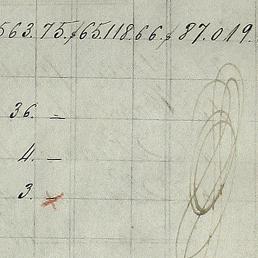 563.75./65.118.66./87.019.
36. —
4. —
3. —